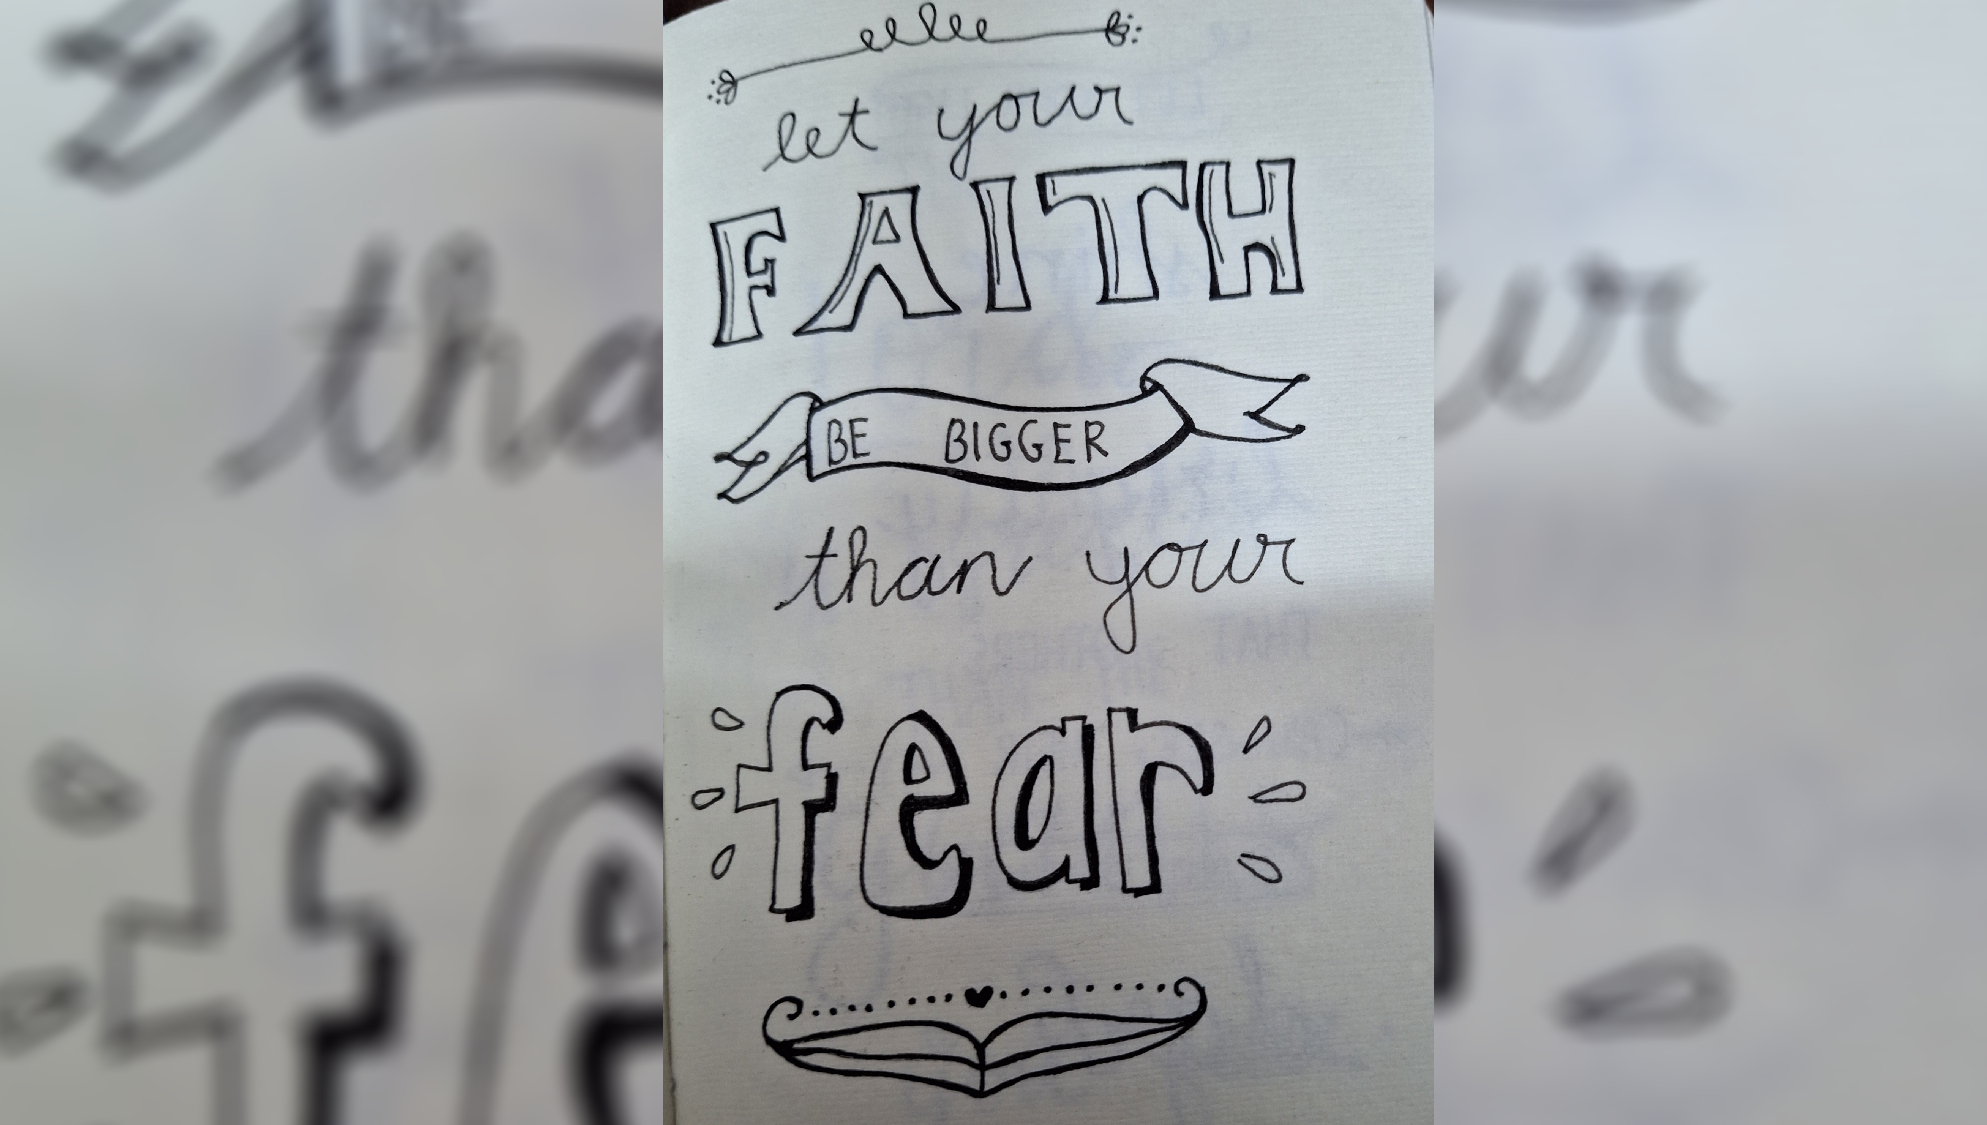 let your
FAITH
BE BIGGER
than your
fear